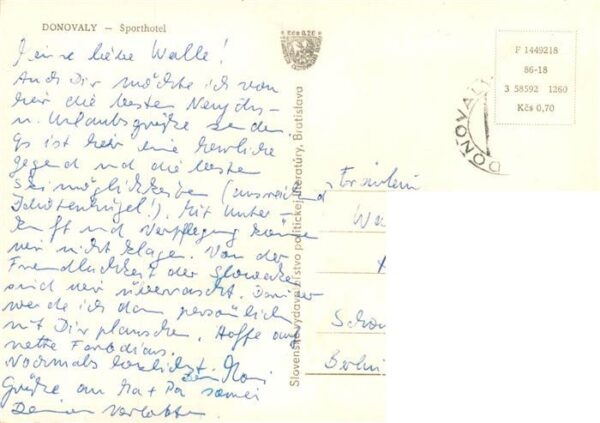 DONOVALY – Športhotel
Meine liebe Walle!
Auch Dir möchte ich von
hier die besten Neujahrs-
u. Urlaubsgrüße senden
Es ist hier eine herrliche
Gegend und die besten
Skimöglichkeiten (ausreichend
!). Mit Unter-
kunft und Verpflegung können
wir nicht klagen. Von der
Freundlichkeit der Slowaken
sind wir überrascht. Darüber
werde ich dann persönlich
mit Dir plauschen. Hoffe auf
nette
Nochmals herzlichst
Grüße an Ma + Pa sowie
Deinen Verlobten
Kčs 0,20
Slovenské vydavateľstvo politickej literatúry, Bratislava
F 1449218
86-18
3 58592 1260
Kčs 0,70
DONOVALY
Fräulein
Wa
Schön
Berlin